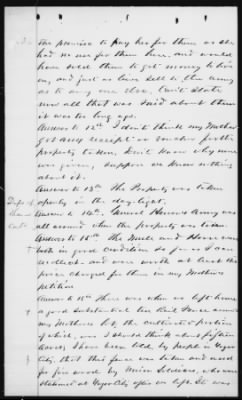 the promise to pay her for them as she
had no use for them here, and would
have sold them to get money to live
on, and just as lieve sell to the army
as to any one else. Can't state
now all that was said about them
it was too long ago.
Answer to 12th I don't think my Mother
got any receipt or voucher for the
property taken. Don't know why none
was given, suppose we knew nothing
about it.
Answer to 13th The Property was taken
openly in the day-light.
Answer to 14th Army was
all around when the property was taken
Answer to 15th The Mule and Horse were
both in good condition so far as I can
recollect and were worth at least the
price charged for them in my Mothers
petition
Answer to 16th There was when we left home
a good substantial Rail Fence around
my Mothers lot, the
of which, was I should think about fifteen
I have been told by people in Yazoo
City, that this fence was taken and used
for fire wood by Union Soldiers, who were
stationed at Yazoo City after we left. It was